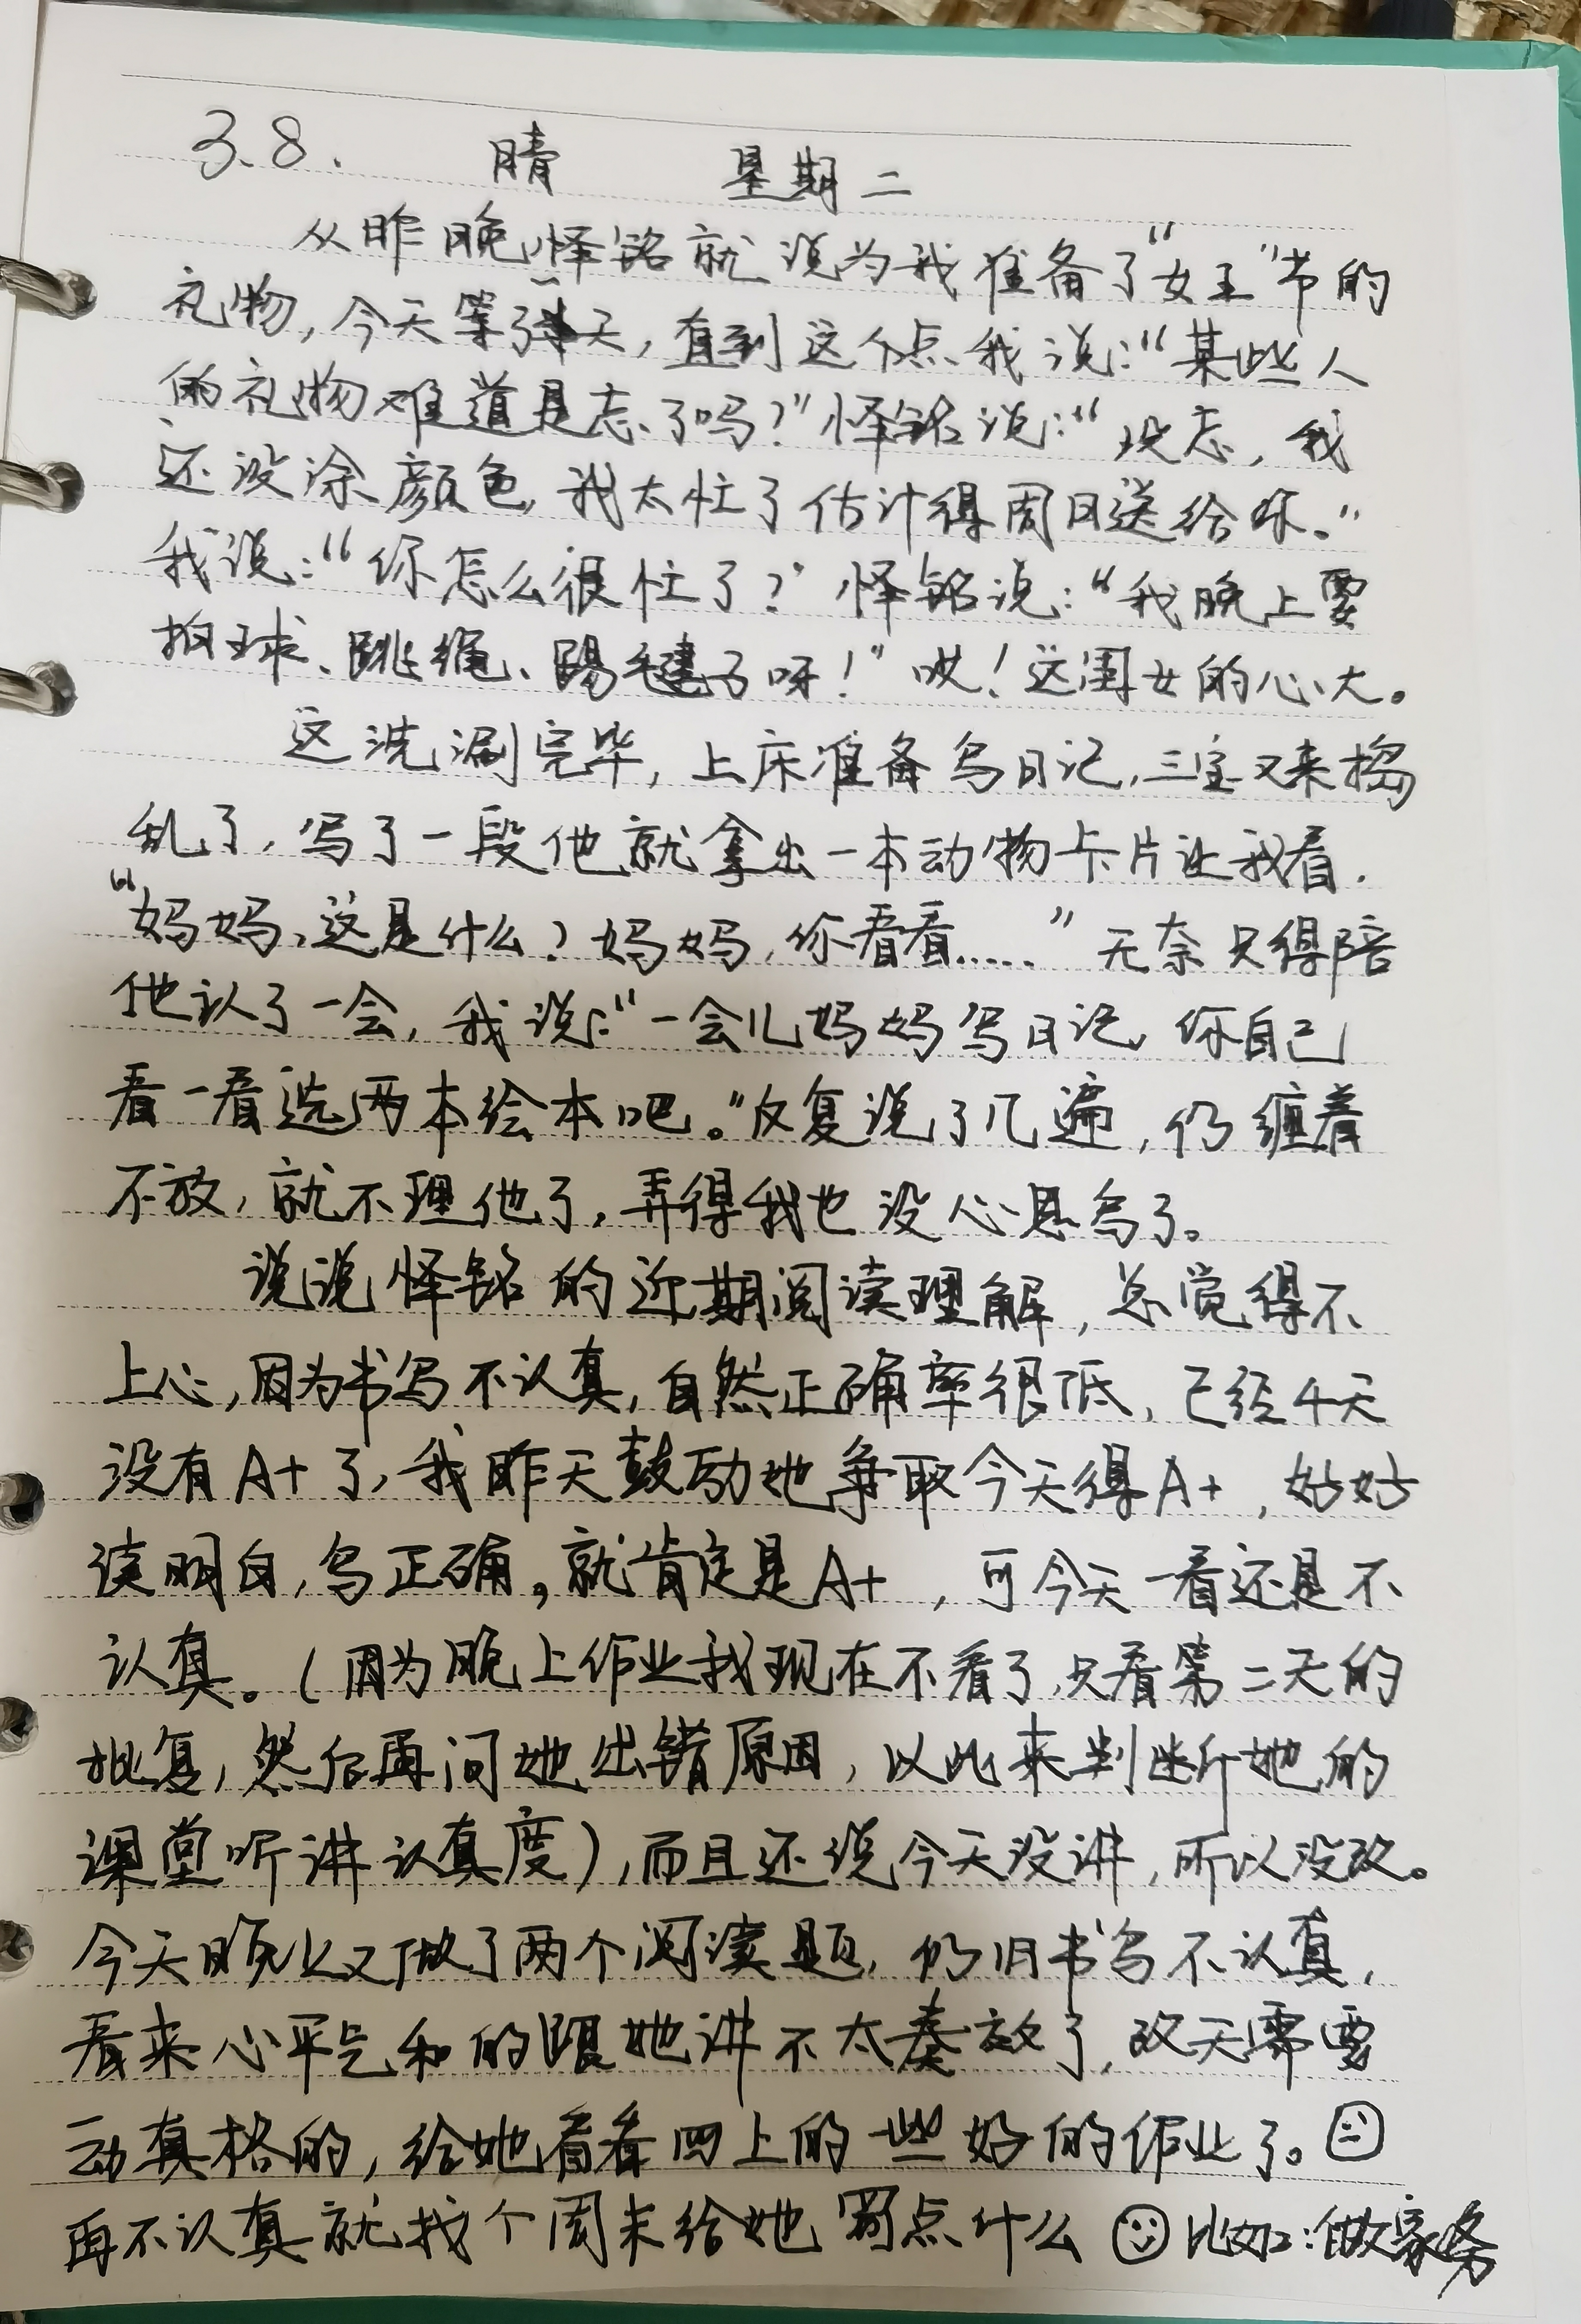 3.8. 晴 星期二
从昨晚怿铭就说为我准备了“女王”节的
礼物,今天等了半天,直到这个点我说:“某些人
的礼物难道是忘了吗?”怿铭说:“没忘,我
还没涂颜色,我太忙了估计得周日送给你。”
我说:“你怎么很忙了?”怿铭说:“我晚上要
拍球、跳绳、踢毽子呀!”哎!这闺女的心大。
这洗涮完毕,上床准备写日记,三宝又来捣
乱了,写了一段他就拿出一本动物卡片让我看.
“妈妈,这是什么?妈妈,你看看……”无奈只得陪
他认了一会,我说:“一会儿妈妈写日记,你自己
看一看选两本绘本吧。”反复说了几遍,仍缠着
不放,就不理他了,弄得我也没心思写了。
说说怿铭的近期阅读理解,总觉得不
上心,因为书写不认真,自然正确率很低,已经4天
没有A+了,我昨天鼓励她争取今天得A+,好好
读明白,写正确,就肯定是A+,可今天一看还是不
认真。(因为晚上作业我现在不看了,只看第二天的
批复,然后再问她出错原因,以此来判断她的
课堂听讲认真度),而且还说今天没讲,所以没改。
今天晚上又做了两个阅读题,仍旧书写不认真,
看来心平气和的跟她讲不太奏效了,改天需要
动真格的,给她看看四上的一些好的作业了。
再不认真就找个周末给她罚点什么 比如:做家务